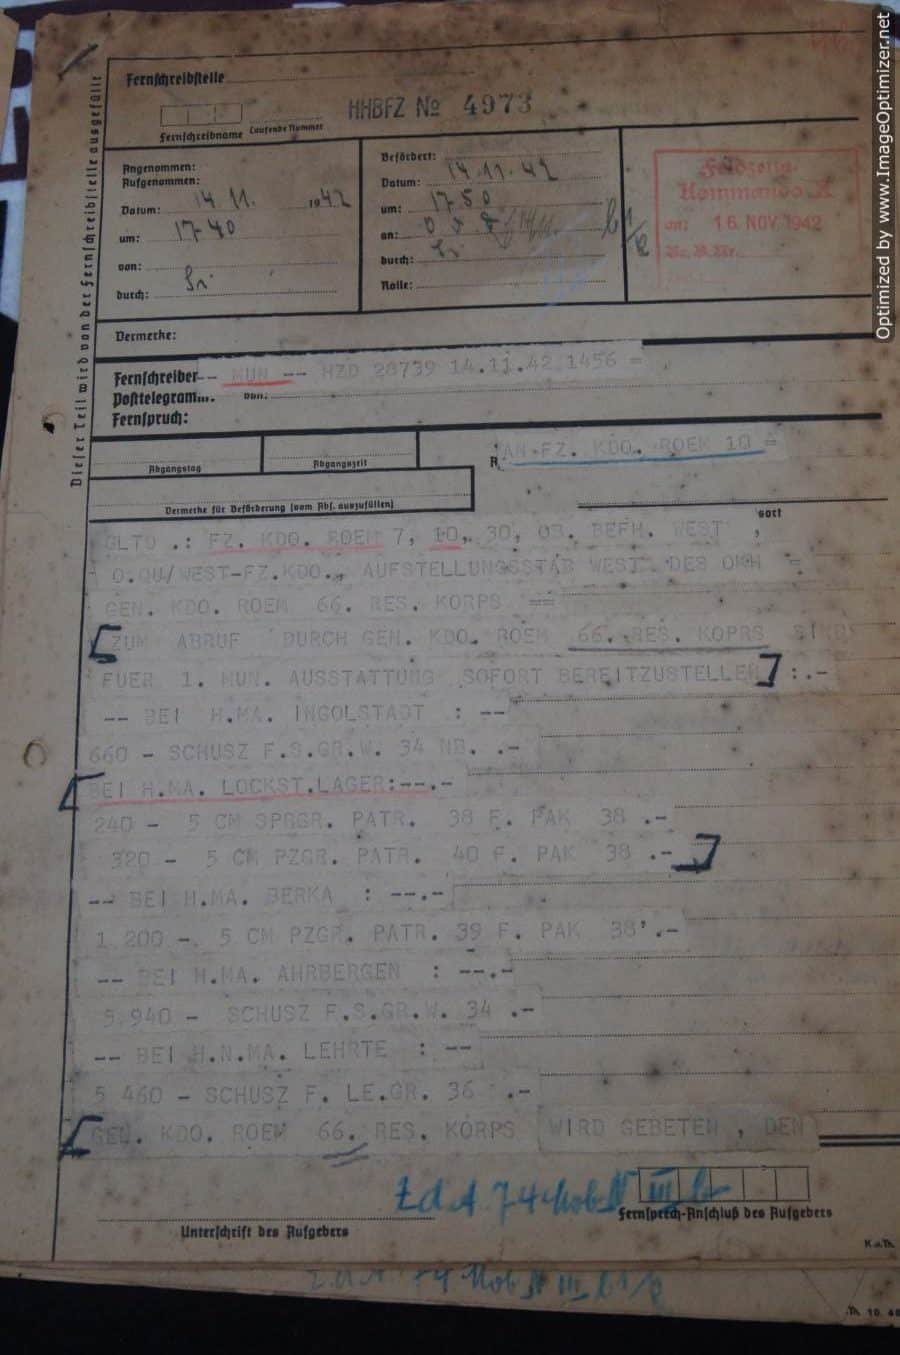 Fernschreibstelle
HHBFZ No 4973
Fernschreibname Laufende Nummer
Dieser Teil wird von der Fernschreibstelle ausgefüllt
Angenommen:
Aufgenommen:
Datum: 14.11. 1942
um: 1740
von:
durch:
Befördert:
Datum: 14.11.42
um: 1750
an:
durch:
Rolle:
Feldzeug-
Kommando X
16. NOV 1942
Vermerke:
Fernschreiben -- MUN -- HZD 28739 14.11.42 1456 =
Posttelegramm: von:
Fernspruch:
Abgangstag
Abgangszeit
AN FZ. KDO. ROEM 10 =
Vermerke für Beförderung (vom Abs. auszufüllen)
sort
GLTD .: FZ. KDO. ROEM 7, 10, 30, OB. BEFH. WEST ,
O.QU/WEST-FZ.KDO., AUFSTELLUNGSSTAB WEST DES OKH =
GEN. KDO. ROEM 66. RES. KORPS ==
ZUM ABRUF DURCH GEN. KDO. ROEM 66. RES. KOPRS SIND
FUER 1. MUN. AUSSTATTUNG SOFORT BEREITZUSTELLEN :.-
-- BEI H.MA. INGOLSTADT : --
660 - SCHUSZ F.S.GR.W. 34 NB. .-
BEI H.MA. LOCKST.LAGER:--.-
240 - 5 CM SPRGR. PATR. 38 F. PAK 38 .-
320 - 5 CM PZGR. PATR. 40 F. PAK 38 .-
-- BEI H.MA. BERKA : --.-
1 200 -. 5 CM PZGR. PATR. 39 F. PAK 38'.-
-- BEI H.MA. AHRBERGEN : --.-
5 940 - SCHUSZ F.S.GR.W. 34 .-
-- BEI H.N.MA. LEHRTE : --
5 460 - SCHUSZ F. LE.GR. 36 .-
GEN. KDO. ROEM 66. RES. KORPS WIRD GEBETEN , DEN
Z.d.A. 74 Mob IV III b
Unterschrift des Aufgebers
Fernsprech-Anschluß des Aufgebers
K.u.Th.
Z.d.A. 74 Mob IV III b1/k
Th. 10. 40
Optimized by www.ImageOptimizer.net